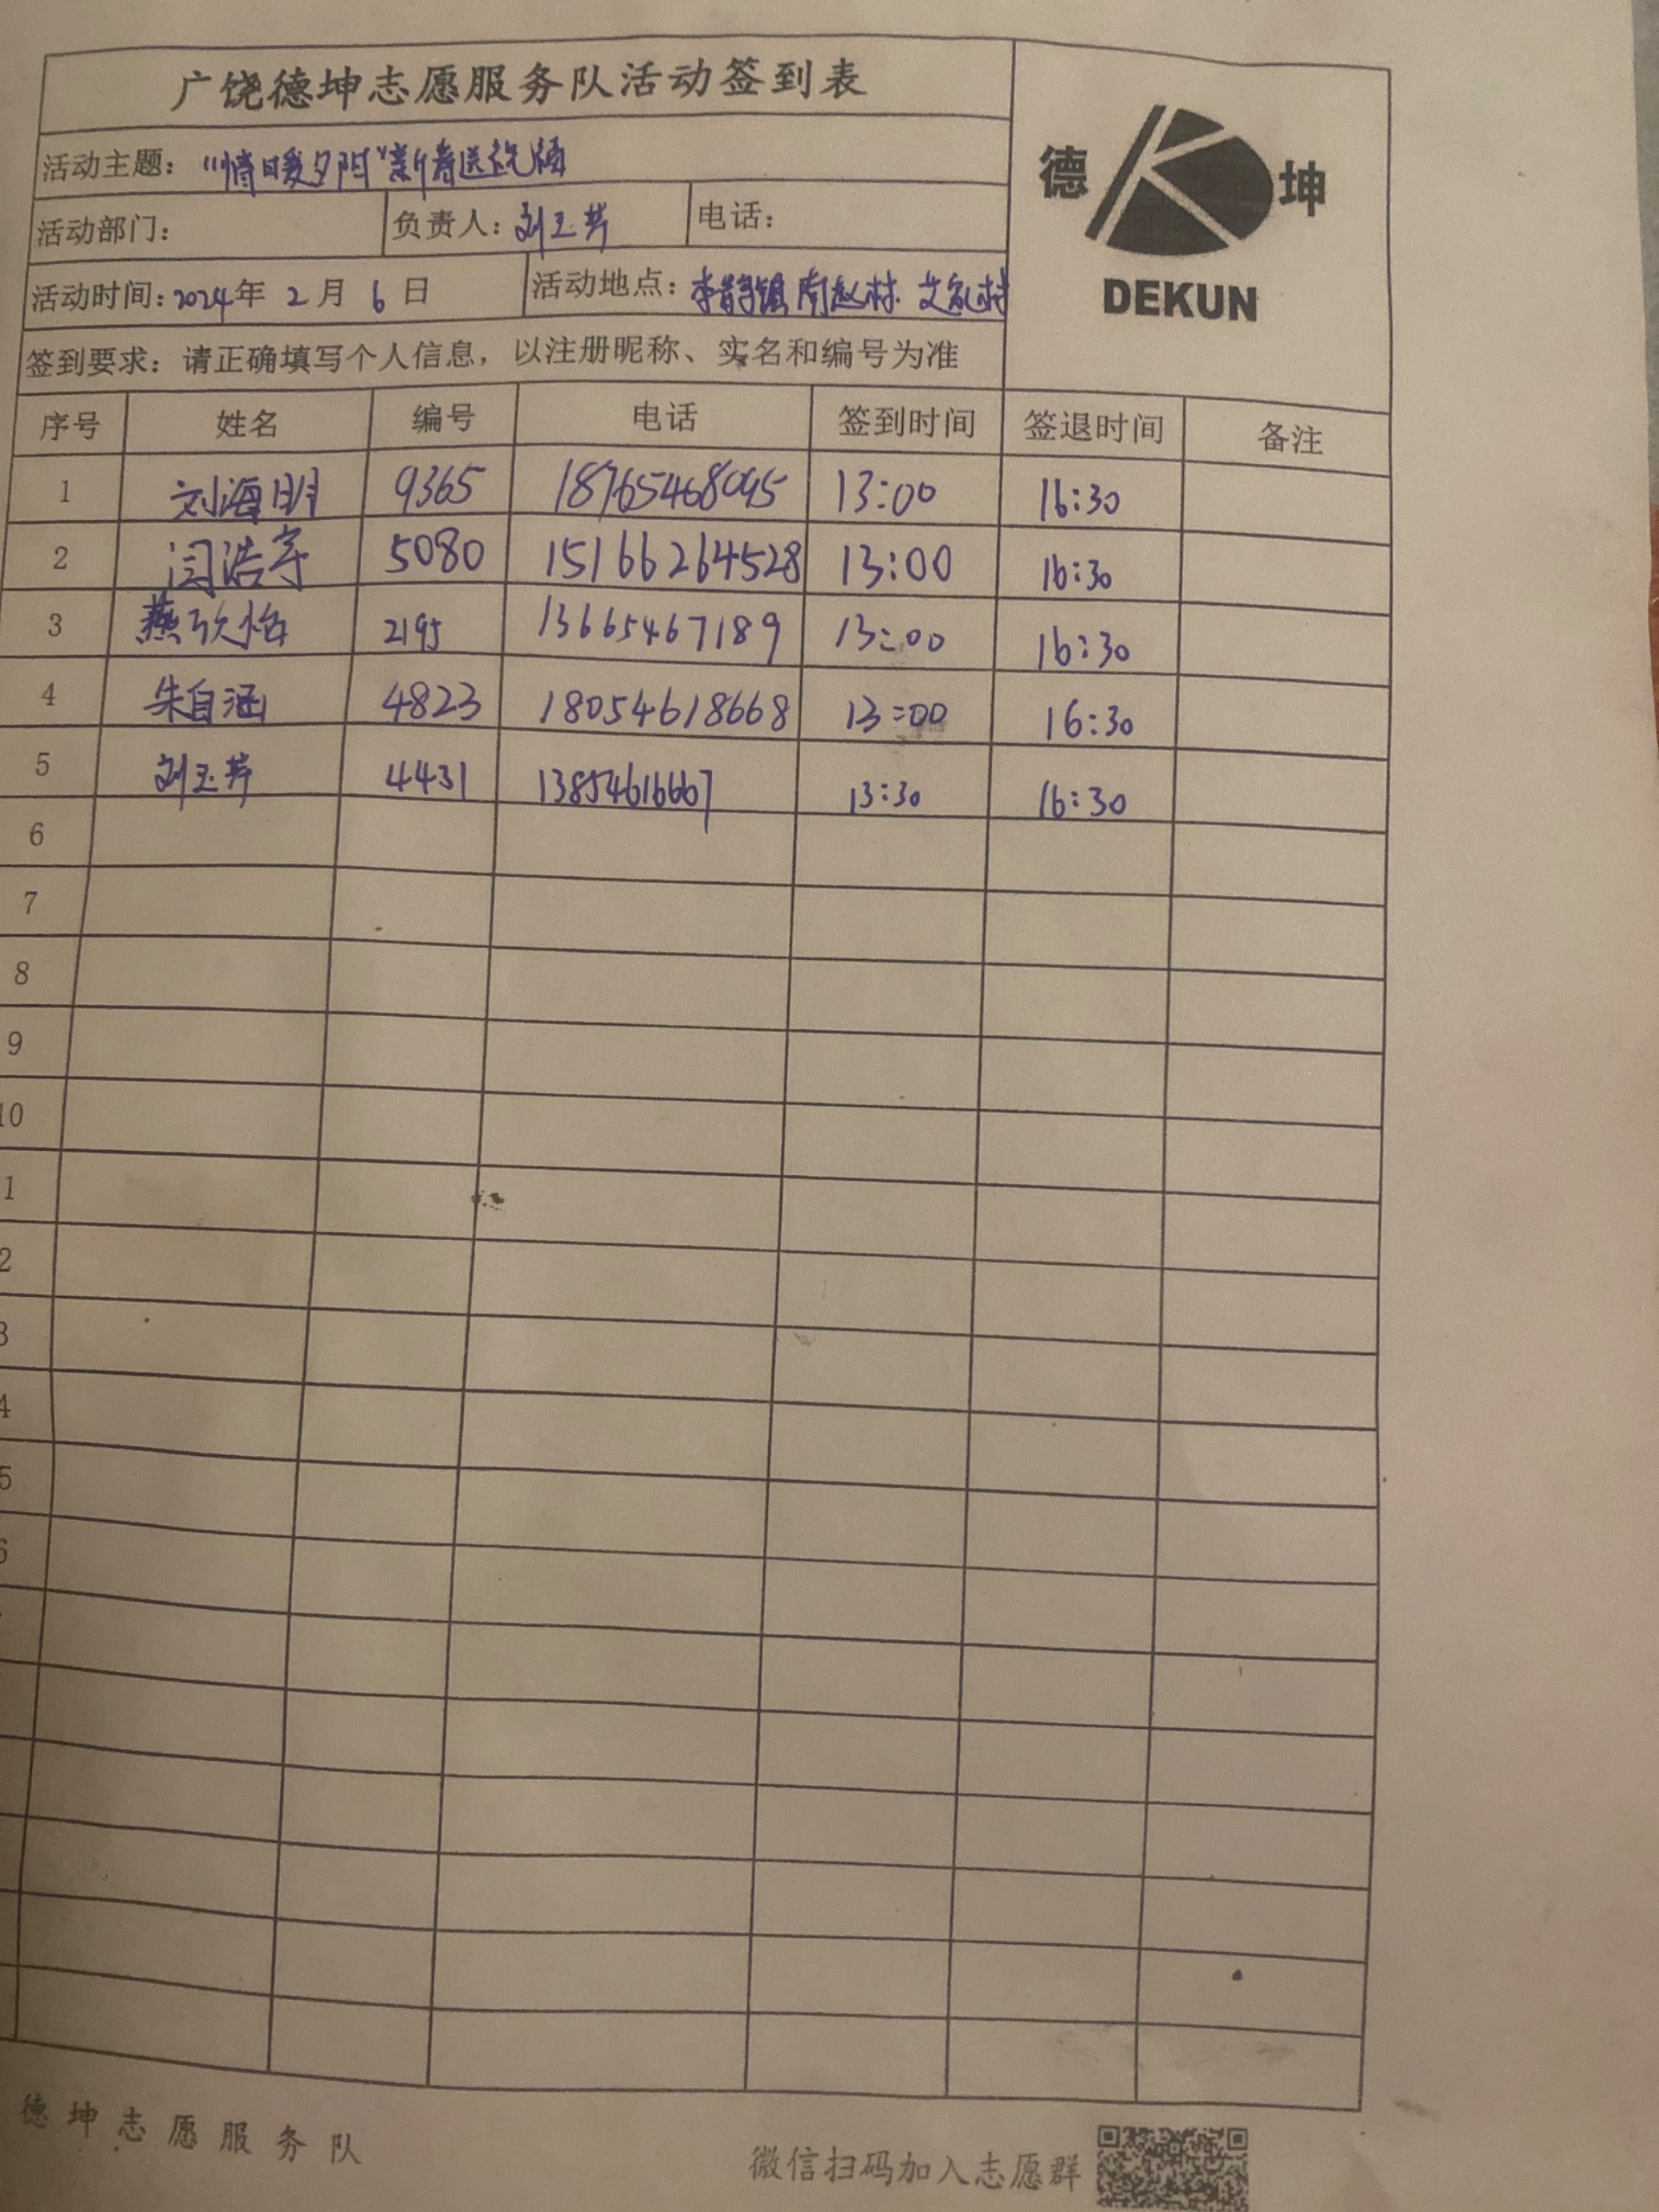 广饶德坤志愿服务队活动签到表
德 坤
DEKUN
活动主题："情暖夕阳"新春送祝福
活动部门： 负责人：刘玉芹 电话：
活动时间：2024年 2 月 6 日 活动地点：李鹊镇 南赵村
签到要求：请正确填写个人信息，以注册昵称、实名和编号为准
序号 姓名 编号 电话 签到时间 签退时间 备注
1 刘海明 9365 18765468095 13:00 16:30
2 闫浩宇 5080 15166264528 13:00 16:30
3 燕欣怡 2195 13665467189 13:00 16:30
4 朱自涵 4823 18054618668 13:00 16:30
5 刘玉芹 4431 13854616667 13:30 16:30
6
7
8
9
10
1
2
3
4
5
6
德坤志愿服务队
微信扫码加入志愿群